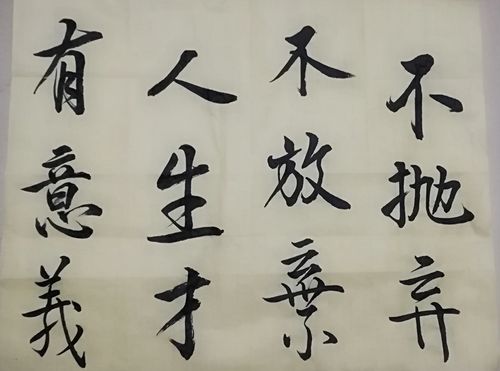 不抛弃
不放棄
人生才
有意義